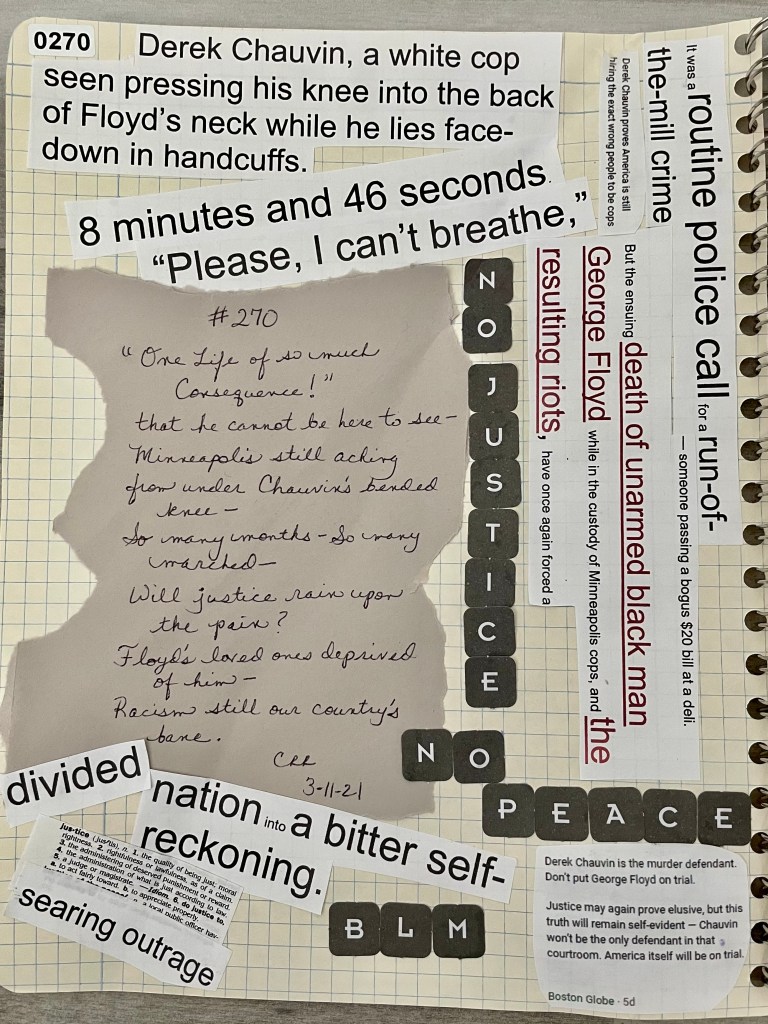 0270
Derek Chauvin, a white cop
seen pressing his knee into the back
of Floyd's neck while he lies face-
down in handcuffs.
8 minutes and 46 seconds.
“Please, I can't breathe,”
It was a routine police call for a run-of-
the-mill crime — someone passing a bogus $20 bill at a deli.
Derek Chauvin proves America is still
hiring the exact wrong people to be cops
But the ensuing death of unarmed black man
George Floyd while in the custody of Minneapolis cops, and the
resulting riots, have once again forced a
#270
“One Life of so much
Consequence!”
that he cannot be here to see—
Minneapolis still aching
from under Chauvin's bended
knee—
So many months – So many
marched—
Will justice rain upon
the pain?
Floyd's loved ones deprived
of him—
Racism still our country's
bane.
3-11-21
NO
JUSTICE
NO
PEACE
divided
nation into a bitter self-
reckoning.
jus·tice (jus′tis), n. 1. the quality of being just; moral
rightness. 2. rightfulness or lawfulness, as of a claim.
3. the administering of deserved punishment or reward.
4. the administration of what is just according to law.
5. a judge or magistrate. —Idiom. 6. do justice to,
a. to act fairly toward. b. to appreciate properly.
a local public officer hav-
searing outrage
BLM
Derek Chauvin is the murder defendant.
Don't put George Floyd on trial.
Justice may again prove elusive, but this
truth will remain self-evident — Chauvin
won't be the only defendant in that
courtroom. America itself will be on trial.
Boston Globe · 5d